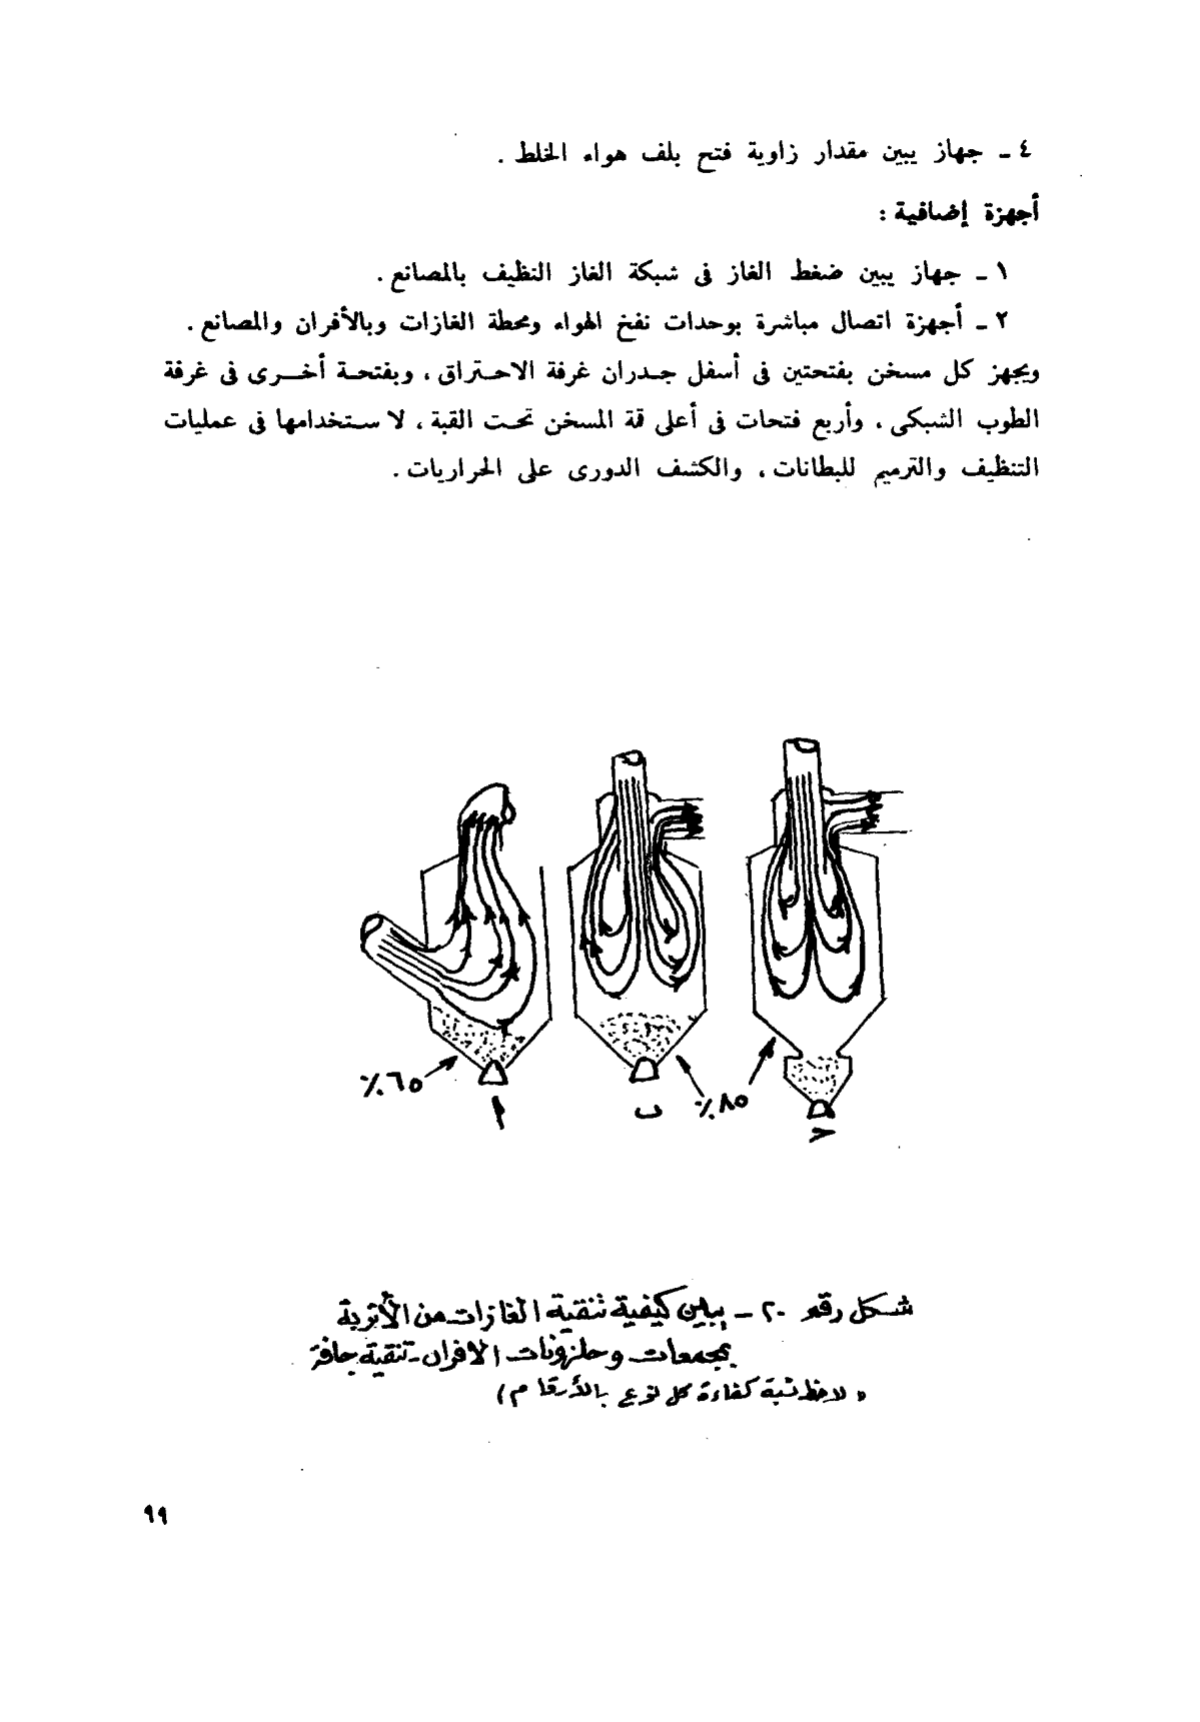 ٤ ـ جهاز يبين مقدار زاوية فتح بلف هواء الخلط .
أجهزة إضافية :
١ ـ جهاز يبين ضغط الغاز فى شبكة الغاز النظيف بالمصانع .
٢ ـ أجهزة اتصال مباشرة بوحدات نفخ الهواء ومحطة الغازات وبالأفران والمصانع .
ويجهز كل مسخن بفتحتين فى أسفل جـدران غرفة الاحـتراق ، وبفتحـة أخـرى فى غرفة
الطوب الشبكى ، وأربع فتحات فى أعلى قة المسخن تحـت القبة ، لا ستخدامها فى عمليات
التنظيف والترميم للبطانات ، والكشف الدورى على الحراريات .
٪٦٥
٪٨٥
أ
ب
ح
شكل رقم ٢٠ ـ يبين كيفية تنقية الغازات من الأتربة
بمجمعات وحلزونات الافران ـ تنقية جافة
« لاحظ نسبة كفاءة كل نوع بالأرقام )
٩٩